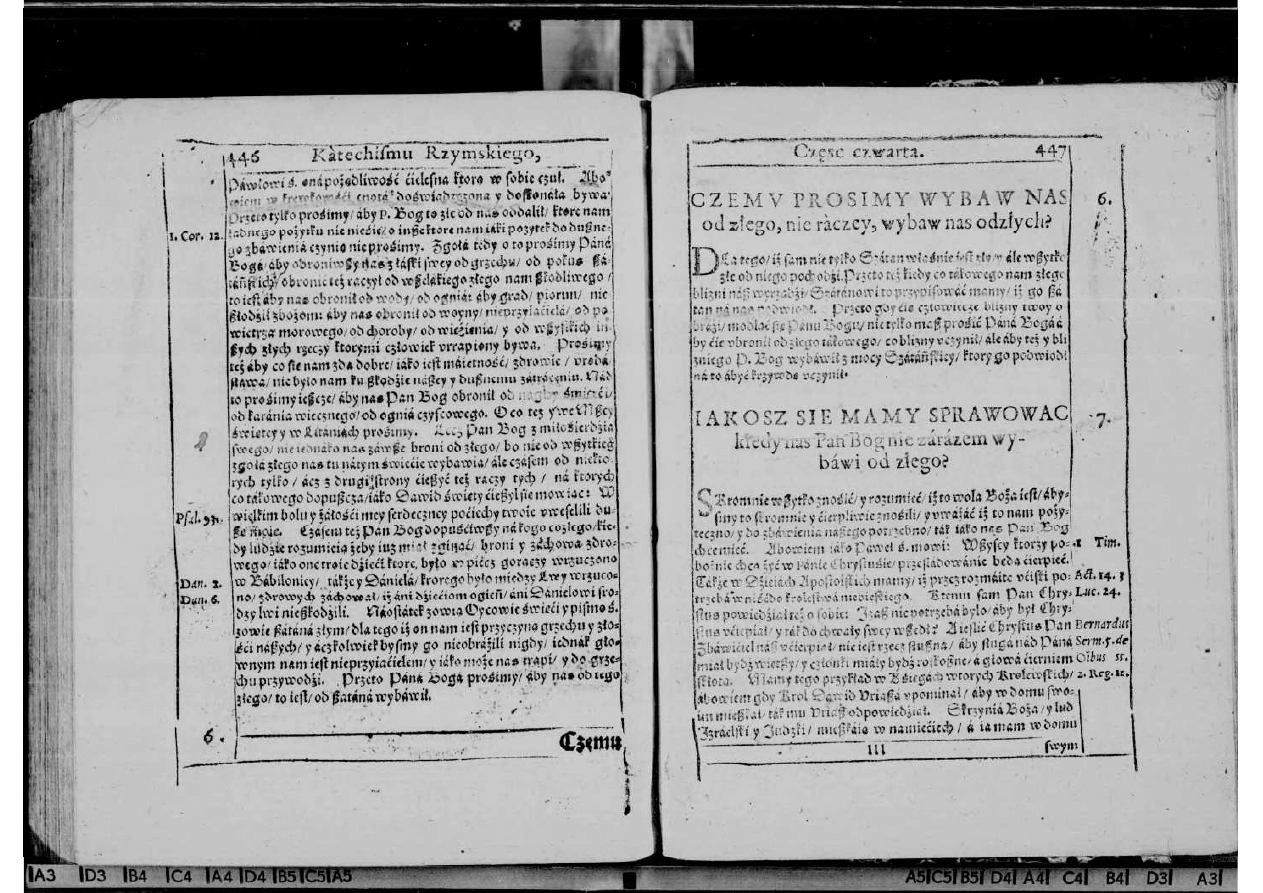 446 Kátechiſmu Rzymskiego,
Páwłowi ś. oná pożądliwość ćieleſna ktorą w ſobie czuł. Abo-
wiem w krewkośći cnotá doświádczona y doſkonáła bywa.
Przeto tylko prośimy/ áby P. Bog to złe od nas oddalił/ ktore nam
1. Cor. 12. żadnego pożytku nie nieśie/ o inße ktore nam iáki pożytek do dußne-
go zbáwienia czynią nie prośimy. Zgołá tedy o to prośimy Páná
Bogá/ áby obroniwßy nas z łáſki ſwey od grzechu/ od pokus ßa-
táńſkich/ obronić też raczył od wßelákiego złego nam ßkodliwego/
to ieſt áby nas obronił od wody/ od ogniá: áby grad/ piorun/ nie
ßkodził zbożom: áby nas obronił od woyny/ nieprzyiaćielá/ od po-
wietrza morowego/ od choroby/ od więźienia/ y od wßyſtkich in-
ßych złych rzeczy ktorymi człowiek vtrapiony bywa. Prośimy
też áby co ſie nam zda dobre/ iáko ieſt máiętność/ zdrowie/ vrodá
sławá/ nie było nam ku ßkodzie náßey y dußnemu zátráceniu. Nád
to prośimy ießcze/ áby nas Pan Bog obronił od nagłey śmierći/
od karánia wiecznego/ od ogniá czyſcowego. O co też y we Mßey
świętey y w Litániách prośimy. Lecz Pan Bog z miłośierdzia
ſwego/ nie iednáko nas záwße broni od złego/ bo nie od wßytkieg
zgołá złego nas tu ná tym świećie wybawia/ ále czáſem od niekto-
rych tylko/ ácz z drugiey ſtrony ćießyć też raczy tych/ ná ktorych
co tákowego dopußcza/ iáko Dawid święty ćießył ſie mowiąc: W
Pſal. 93. wielkim bolu y żáłośći mey ſerdeczney poćiechy twoie vweſeliły du-
ßę moię. Czáſem też Pan Bog dopuśćiwßy ná kogo co złego/ kie-
dy ludzie rozumieią żeby iuż miał zginąć/ broni y záchowa zdro-
wego/ iáko one troie dźieći ktore, było w piecz gorący wrzucono
Dan. 2. w Bábiloniey/ tákże y Dánielá/ ktorego było miedzy Lwy wrzuco-
Dan. 6. no/ zdrowych záchował/ iż áni dźiećiom ogień/ áni Dánielowi ſro-
dzy lwi nießkodźili. Náoſtátek zowią Oycowie święći y piſmo ś.
zowie ßátáná złym/ dla tego iż on nam ieſt przyczyną grzechu y zło-
śći náßych/ y áczkolwiek byſmy go nieobráżili nigdy/ iednák głó-
wnym nam ieſt nieprzyiaćielem/ y iáko może nas trapi/ y do grze-
chu przywodźi. Przeto Páná Bogá prośimy/ áby nas od tego
złego/ to ieſt/ od ßátáná wybáwił.
6. Czemu
Częśc czwarta. 447
CZEMV PROSIMY WYBAW NAS 6.
od złego, nie ráczey, wybaw nas od złych?
DLa tego/ iż ſam nie tylko Szátan właśnie ieſt zły/ y ále wßytko
złe od niego pochodźi. Przeto też kiedy co tákowego nam złego
bliźni náß wyrządźi/ Szátánowi to przypiſowáć mamy/ iż go ßá-
tan ná nas podwiodł. Przeto gdy ćię człowiecze bliźny twoy o
bráźi/ modląc ſię Pánu Bogu/ nie tylko maß prośić Páná Bogá á
by ćię obronił od złego tákowego/ co bliźny vczynił/ ále áby też y bli
źniego P. Bog wybáwił z mocy Szátáńſkiey/ ktory go podwiodł
ná to ábyć krzywdę vczynił.
IAKOSZ SIE MAMY SPRAWOWAC 7.
kiedy nas Pan Bog nie zárázem wy-
báwi od złego?
SKromnie wßytko znośić/ y rozumieć/ iż to wola Boża ieſt/ áby-
ſmy to ſkromnie y ćierpliwie znośili/ y vważáć iż to nam poży-
teczno/ y do zbáwienia náßego potrzebno/ ták iáko nas Pan Bog
chce mieć. Abowiem iáko Páweł ś. mowi: Wßyſcy ktorzy po- Tim.
bożnie chcą żyć w Pánie Chryſtuśie/ prześládowánie będą ćierpieć.
Tákże w Dźieiách Apoſtolſkich mamy/ iż przez rozmáite vćiſki po- Act. 14.
trzebá wniśćdo kroleſtwá niebieſkiego. K temu ſam Pan Chry- Luc. 24.
ſtus powiedźiał też o ſobie: Izaß nie potrzebá było/ áby był Chry-
ſtus vćierpiał/ y ták do chwały ſwey wßedł? A ieſlić Chryſtus Pan Bernardus
Zbáwićiel náß vćierpiał/ nie ieſt rzecz ſłußna/ áby ſługá nád Páná Serm. 5. de
miał bydź więtßy/ y członki miały bydź roſkoßne/ á głowá ćierniem
skłota. Mamy tego przykład w Kśięgách wtorych Krolewſkich/ 2. Reg. 11.
ábowiem gdy Krol Dawid Vriaßá vpominał/ áby w domu ſwo-
im mießkał/ ták mu Vriaß odpowiedźiał. Skrzyniá Boża/ y lud
Izráelſki y Judzki/ mießkáią w namiećiech/ á ia mam w domu
III ſwym
A3 D3 B4 C4 A4 D4 B5 C5 A5
A5 C5 B5 D4 A4 C4 B4 D3 A3